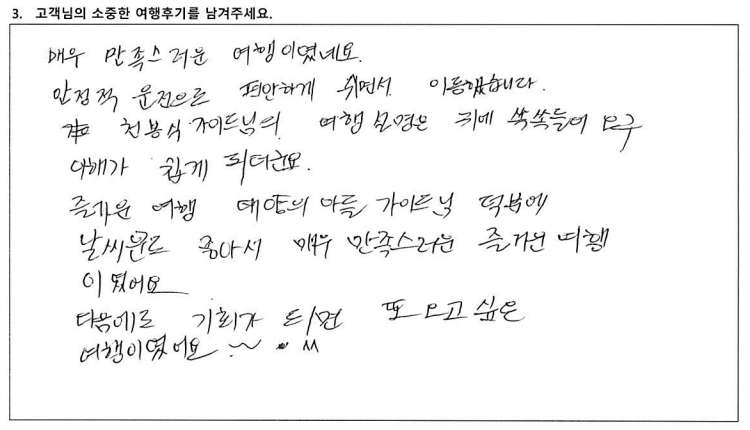 3. 고객님의 소중한 여행후기를 남겨주세요.
매우 만족스러운 여행이였네요.
안정적 운전으로 편안하게 쉬면서 이동했습니다.
천봉식 가이드님의 여행 설명은 귀에 쏙쏙들어 오구
이해가 쉽게 되더군요.
즐거운 여행 태양의 아들 가이드님 덕분에
날씨운도 좋아서 매우 만족스러운 즐거운 여행
이였어요
다음에도 기회가 되면 또 오고 싶은
여행이였어요 ~